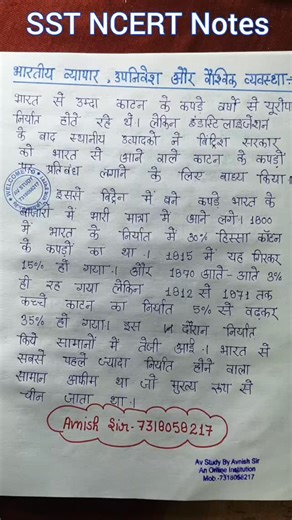 SST NCERT Notes
भारतीय व्यापार, उपनिवेश और वैश्विक व्यवस्था:-
भारत से उम्दा काटन के कपड़े वर्षो से यूरोप
निर्यात होते रहे थे। लेकिन इंडस्ट्रिलाइजेशन
के बाद स्थानीय उत्पादकों ने ब्रिटिश सरकार
को भारत से आने वाले काटन के कपड़ों
पर प्रतिबंध लगाने के लिए बाध्य किया।
इससे ब्रिटेन में बने कपड़े भारत के
बाजारों में भारी मात्रा में आने लगे। 1800
में भारत के निर्यात में 30% हिस्सा कॉटन
के कपड़ों का था। 1815 में यह गिरकर
15% हो गया। और 1870 आते-आते 3%
ही रह गया लेकिन 1812 से 1871 तक
कच्चे काटन का निर्यात 5% से बढ़कर
35% हो गया। इस दौरान निर्यात
किये सामानों में तेजी आई। भारत से
सबसे पहले ज्यादा निर्यात होने वाला
सामान अफीम था जो मुख्य रूप से
चीन जाता था।
Avnish Sir-7318058217
Av Study By Avnish Sir
An Online Institution
Mob.-7318058217